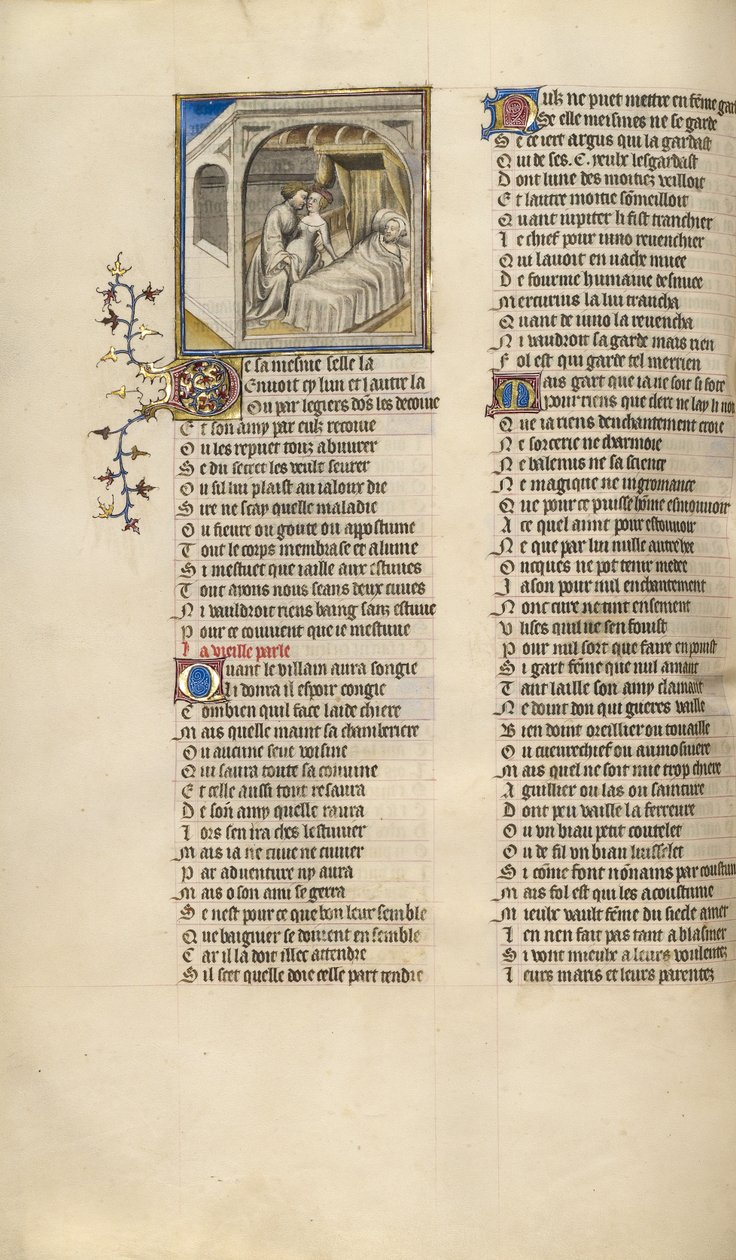 De sa mesme selle la
Envoit cy lun et lautre la
Ou par legiers dons les decoive
Et son amy par eulx recoive
Ou les repuet touz abuvrer
Se du secret les veult seurer
Ou sil lui plaist au ialoux die
Sire ne scay quelle maladie
Ou fievre ou goute ou appostume
Tout le corps membrase et alume
Si mestuet que iaille aux estuves
Tout ayons nous seans deux cuves
Ni vauldroit riens baing sanz estuve
Pource couvient que ie mestuve
La vieille parle
Quant le villain aura songie
Li donra il espoir congie
Combien quil face laide chiere
Mais quelle maint sa chamberiere
Ou aucune seue voisine
Qui saura toute sa couvine
Et celle aussi tout resaura
De son amy quelle raura
Lors sen ira ches lestuvier
Mais ia ne cuve ne cuvier
Par adventure ny aura
Mais o son ami se gerra
Se nest pour ce que bon leur semble
Que baigner se doivent ensemble
Car il la doit illec attendre
Sil scet quelle doie celle part tendre
Nulz ne puet mettre en fême
Se elle meismes ne se garde
Se ce iert argus qui la gardast
Qui de ses .C. yeulx lesgardast
Dont lune des moitiez veilloit
Et lautre moitie sômeilloit
Quant iupiter li fist tranchier
Le chief pour iuno revenchier
Qui lavoit en vache muee
De fourme humaine desnuee
Mercurius la lui trancha
Quant de iuno la revencha
Ni vaudroit sa garde mais rien
Fol est qui garde tel merrien
Mais gart que ia ne soit si sote
Pour riens que clerc ne lay li
Que ia riens denchantement croie
Ne sorcerie ne charmoie
Ne balenus ne sa science
Ne magique ne nigromance
Que pour ce puisse hôme esmouvoir
A ce quel aint pour estouvoir
Ne que par lui nulle autre hee
Oncques ne pot tenir medee
Jason pour nul enchantement
Nonc circe ne tint ensement
Ulixes quil ne sen fouist
Pour nul sort que faire en poист
Si gart fême que nul amant
Tant laille son amy clamant
Ne doint don qui gueres vaille
Bien doint oreillier ou touaille
Ou cueuvrechief ou aumosniere
Mais quel ne soit mie trop chiere
Aguillier ou las ou sainture
Dont peu vaille la ferreure
Ou un biau petit coutelet
Ou de fil un biau luisselet
Si côme font nônains par
Mais fol est qui les acoustume
Mieulx vault fême du siecle amer
Len nen fait pas tant a blasmer
Si vont mieulx a leurs voulentez
Leurs maris et leurs parentez